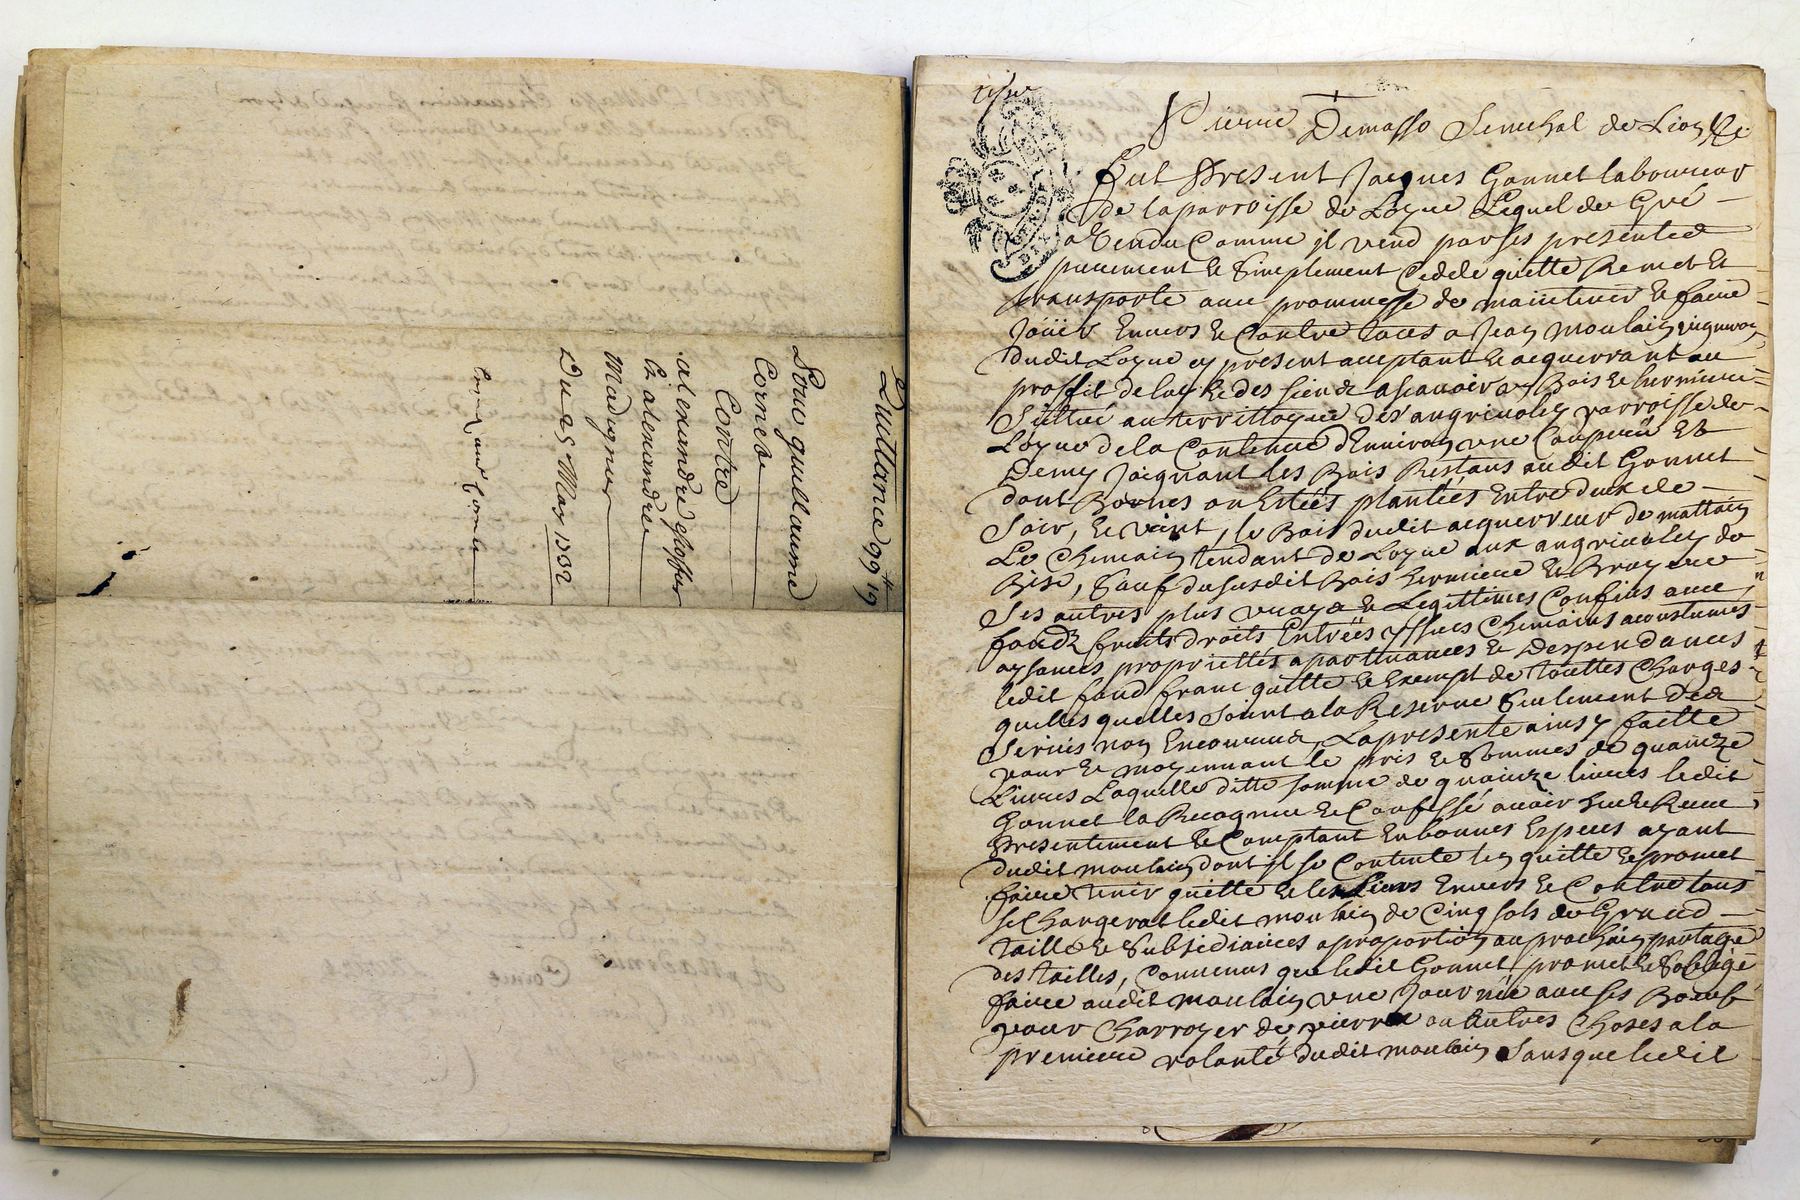 Quittance 99# 19
Pour guillaume
Cornet
Contre
alexandre
et alexandre
Madignier
Du 25 May 1702
Pierre Demasso Senechal de Lion &c
Fut Present Jacques Gonnet laboureur
de la parroisse de Loyue Lequel de Gré
a Vendu Comme jl vend par ses presentes
purement & Simplement Cedde quitte Remet &
transporte auec prommesse de maintenir & faire
Joüir Enuers & Contre tous a Jean moulain vigneron
dudit Loyue cy present acceptant & acquerrant au
proffit de luy & des siens ascauoir vn Bois & hermiere
Sittué au territtoyre des angriuoley parroisse de
Loyue de la Contenue d'Enuiron vne Couperée Et
Demy Joignant les Bois Restans audit Gonnet
dont Bornes on Estées plantées Entre deux de
Soir, & vent, le Bois dudit acquerreur de mattain
Le Chemain tendant de Loyue aux angriuoley de
Bise, Sauf du susdit Bois hermiere & Bruyere
Ses autres plus vrays & Legittimes Confins auec
fondz fruits droits Entrées yssues Chemains acoustumés
aysances propriettés apartenances & Despendances
ledit fond franc quitte & Exempt de touttes Charges
quelles quelles soient a la Reserue Seulement des
Seruis non Encourus, La presente ainsy faitte
pour & moyennant le pris & Sommes de quainze
Liures Laquelle ditte somme de quainze liures ledit
Gonnet la Recognu & Confessé auoir heu & Receu
Presentement & Comptant En bonnes Especes ayant
dudit moulain dont jl se Contente len quitte & promet
faire tenir quitte & les siens Enuers & Contre tous
se Chargerat ledit moulain de Cinq sols de Grand
taille & Subsidiaires a proportion au prochain partage
des tailles, Conuenus que ledit Gonnet promet & Soblige
faire audit moulain vne Journée auec ses Boeufs
pour Charroyer de pierre ou autres Choses a la
premiere volonté dudit moulain Sans que ledit